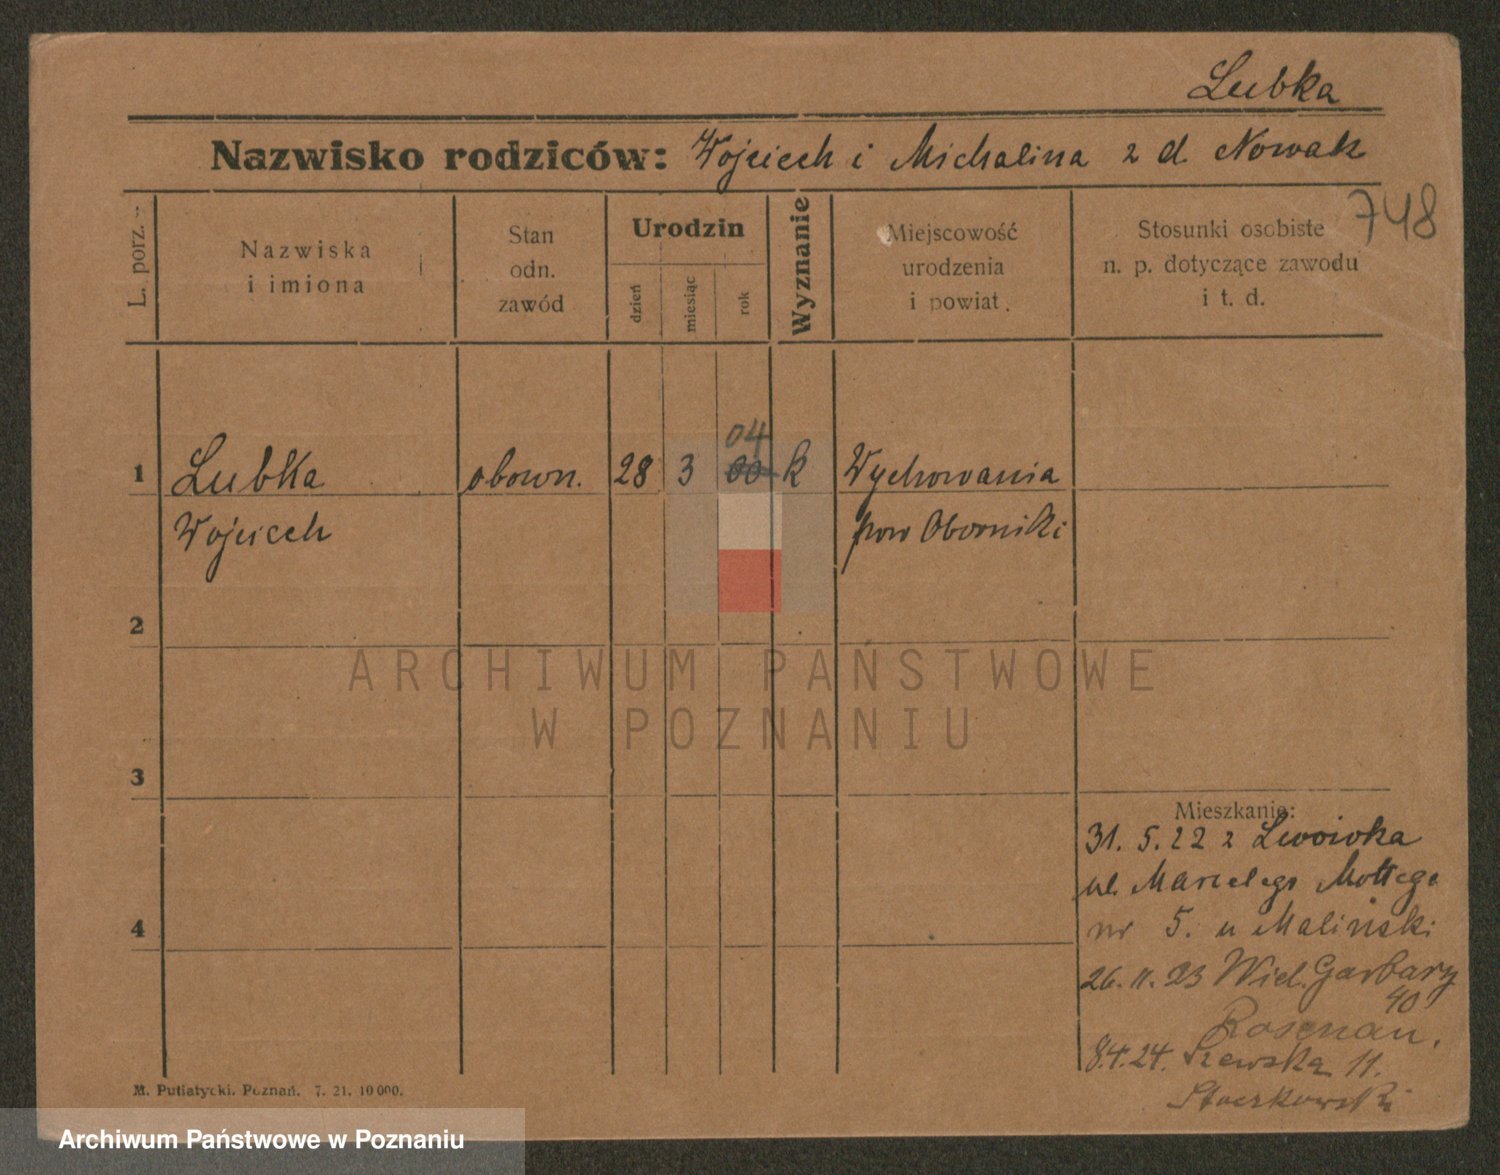 Lubka
Nazwisko rodziców: Wojciech i Michalina z d. Nowak
748
L. porz.
Nazwiska
i imiona
Stan
odn.
zawód
Urodzin
dzień
miesiąc
rok
Wyznanie
Miejscowość
urodzenia
i powiat.
Stosunki osobiste
n. p. dotyczące zawodu
i t. d.
04
1 Lubka obown. 28 3 00 k Wychowania
Wojciech pow Oborniki
2
ARCHIWUM PAŃSTWOWE
W POZNANIU
3
Mieszkanie:
31. 5. 22 z Lwówka
ul. Marcelego Mottego
4
nr 5. u Maliński
26. 11. 23 Wiel. Garbary
40
Rosenau.
8.4.24. Szewska 11.
Stoczkowski
M. Putiatycki. Poznań. 7. 21. 10 000.
Archiwum Państwowe w Poznaniu